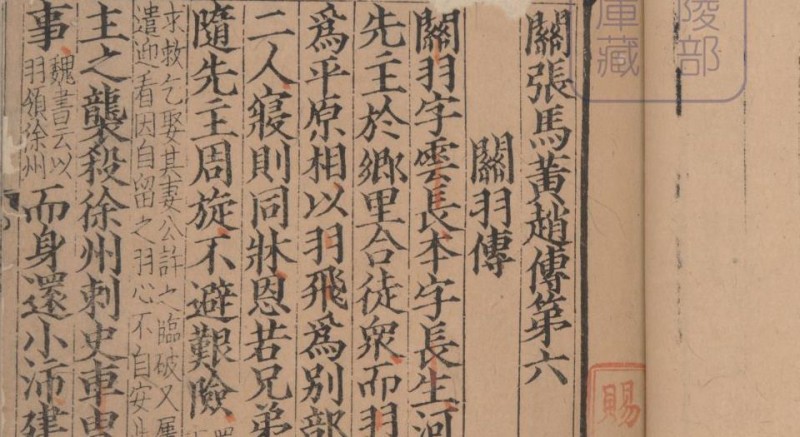 陵部
庫藏
賜
關張馬黃趙傳第六
關羽傳
關羽字雲長本字長生河
先主於鄉里合徒衆而羽
爲平原相以羽飛爲別部
二人寢則同牀恩若兄弟
隨先主周旋不避艱險
求救乞娶其妻公許之臨破又屢
遣迎看因自留之羽心不自安
主之襲殺徐州刺史車胄
事魏書云以
羽領徐州
而身還小沛建